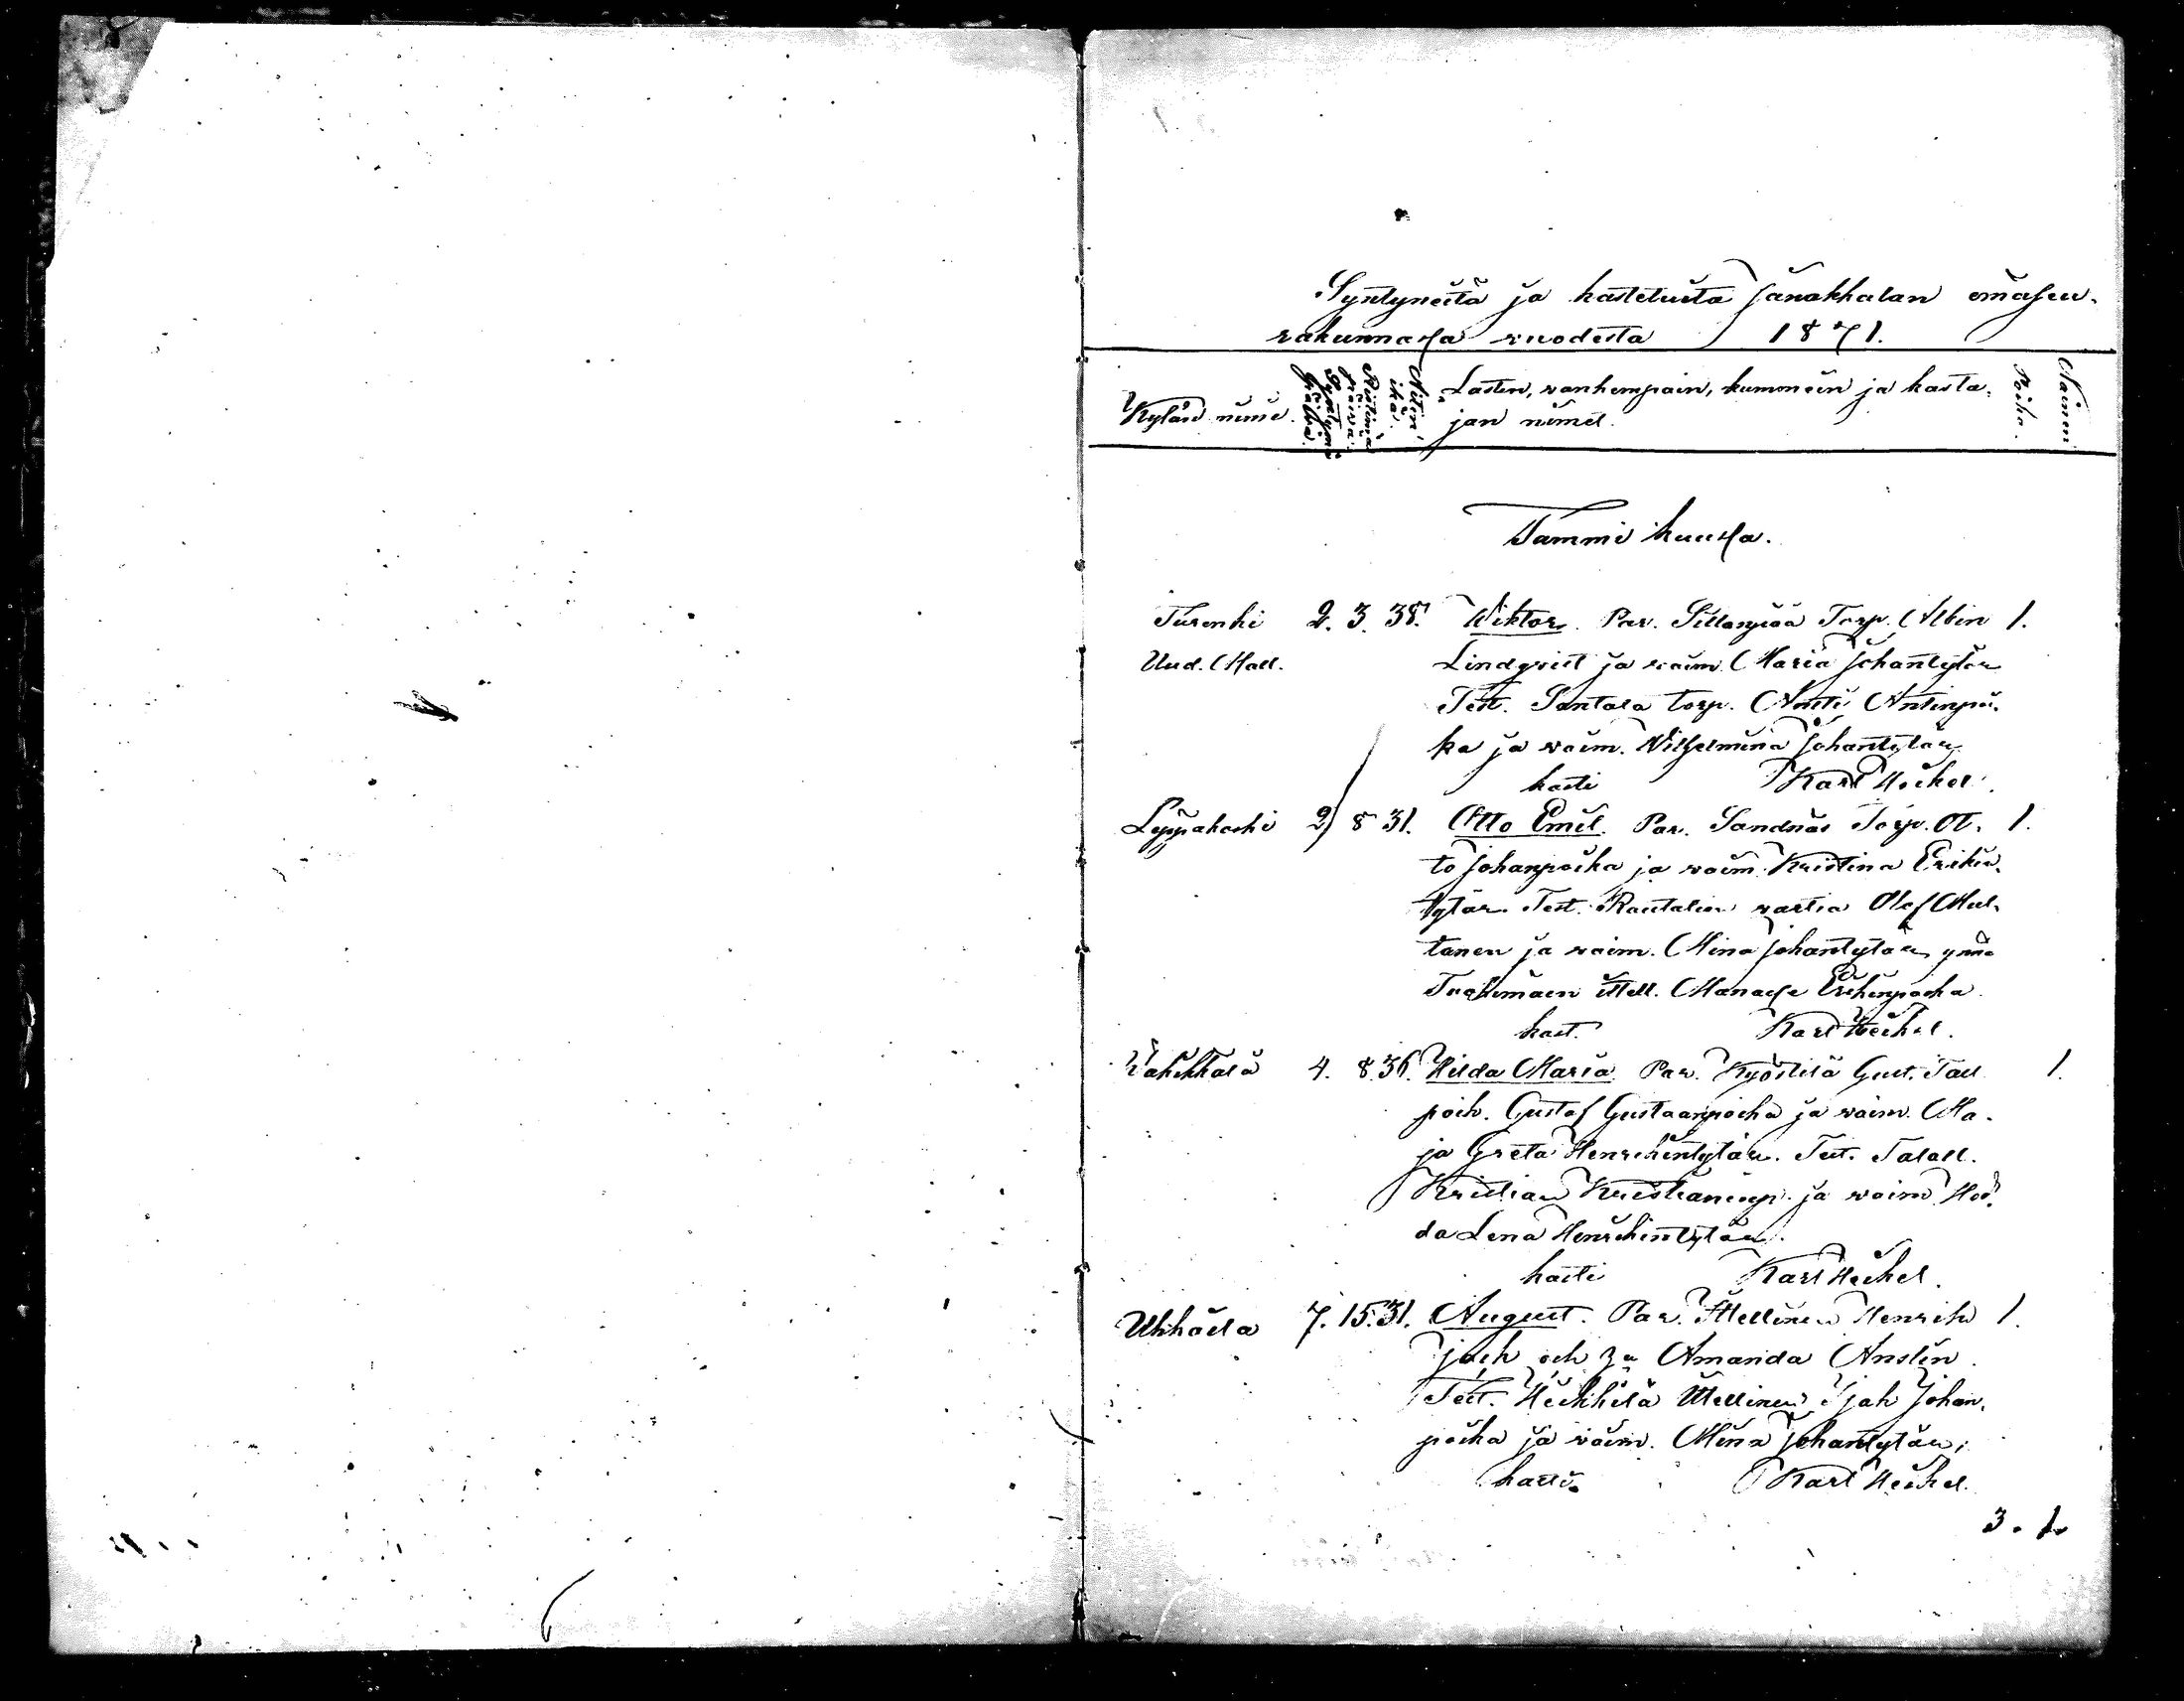 Syntyneitä ja kastetuita Janakkalan emäseu-
rakunnassa vuodesta 1871.
Kylän nimi.
Syntymä päivä.
Ristimä päivä.
Äitin ikä.
Lasten, vanhempain, kummein ja kasta-
jan nimet.
Poika.
Nainen
Tammi kuussa.
Turenki 2. 3. 38. Wiktor. Par. Sillanpää Torp. Albin 1.
Uud. Mall. Lindqvist ja vaim. Maria Johantytär
Test. Santala torp. Antti Antinpoi-
ka ja vaim. Wilhelmina Johantytär
kasti Karl Heikel.
Leppäkoski 2 8 31. Otto Emil. Par. Sandnäs Torp. Ot- 1.
to Johanpoika ja vaim. Kristina Erikin-
tytär. Test. Rautatien vartia Olof Mul-
tanen ja vaim. Mina Johantytär, ynnä
itsell. Manasse Erikinpoika
kast. Karl Heikel.
Vähikkälä 4. 8. 36. Hilda Maria. Par. Kyöstilä Gust. Tall. 1.
poik. Gustaf Gustaanpoika ja vaim. Ma-
ja Greta Henrikintytär. Test. Talall.
Kristian Kristianinp. ja vaim. Hed-
da Lena Henrikintytär.
kasti Karl Heikel.
Uhkoila 7. 15. 31. August. Par. Itsellinen Henrik 1.
och Amanda Antin
Test. Heikkilä Itsellinen Isak Johan-
poika ja vaim. Mina Johantytär,
kasti. Karl Heikel.
3. 1.